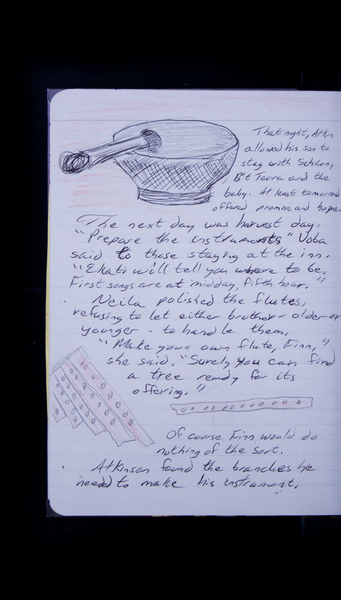 That night, Atkin
allowed his son to
stay with
But Tavra and the
baby. At least tomorrow
offered promise and hope.
The next day was harvest day.
"Prepare the instruments" Voba
said to those staying at the inn.
"Ekati will tell you where to be.
First songs are at midday, fifth hour."
Neila polished the flutes,
refusing to let either brother - older or
younger - to handle them.
"Make your own flute, Finn,"
she said. "Surely you can find
a tree ready for its
offering."
Of course Finn would do
nothing of the sort.
Atkinson found the branches he
needed to make his instrument.